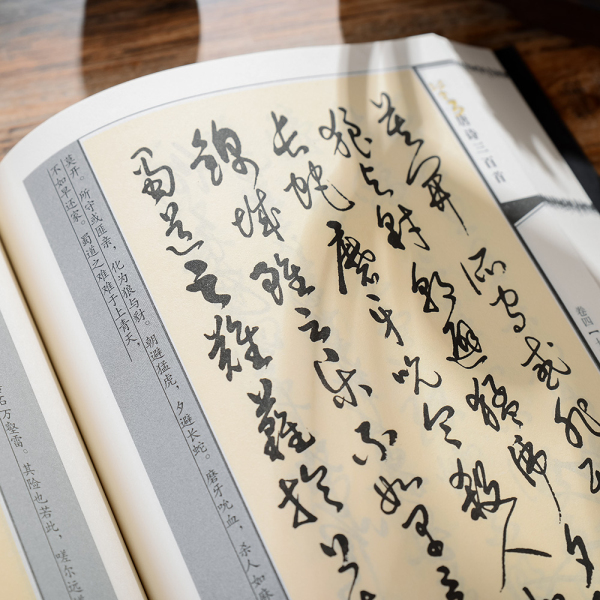 唐诗三百首
卷四
莫開所守或匪
狼与豺朝避猛虎夕
長蛇磨牙吮血殺人
錦城雖云樂不如早
蜀道之難難於上
莫开。所守或匪亲，化为狼与豺。朝避猛虎，夕避长蛇。磨牙吮血，杀人如麻
不如早还家。蜀道之难难于上青天，
万壑雷。其险也若此，嗟尔远